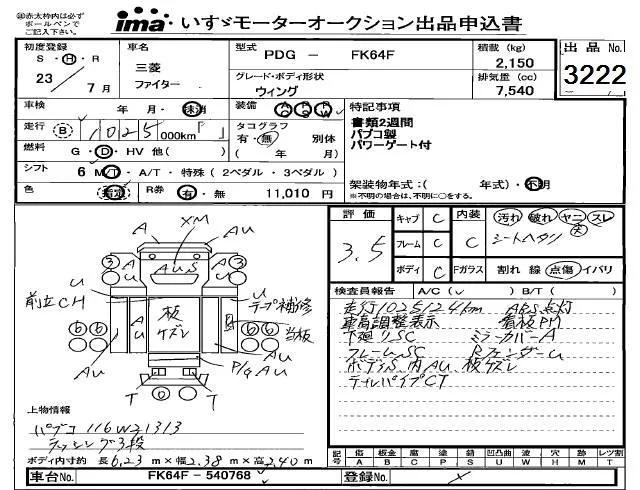 ㊞赤太枠内は必ず
ボールペンで
ご記入下さい。
ima いすゞモーターオークション出品申込書
初度登録
S・H・R
23 7月
車名
三菱
ファイター
型式
PDG － FK64F
グレード・ボディ形状
ウィング
積載 (kg)
2,150
排気量 (cc)
7,540
出品No.
3222
車検 年 月・抹消
装備 A/C P/S P/W
走行 B 1025 000km「 」
タコグラフ
有・無 別体
( 年 月)
燃料 G・D・HV 他( )
シフト 6 M/T・A/T・特殊 (2ペダル・3ペダル)
色
R券 有・無 11,010 円
特記事項
書類2週間
パブコ製
パワーゲート付
架装物年式:( 年式)・不明
※不明の場合は、不明に○をする。
評価 3.5
キャブ C
フレーム C
ボディ C
内装 C
Fガラス
汚れ 破れ ヤニ スレ
シートヘタリ 大
割れ 線 点傷 イバリ
検査員報告 A/C(✓) B/T( )
走行102512.4km ABS点灯
車高調整表示 看板PM
下廻りSC ミラーカバーA
フレームSC Rフェンダーu
ボディS 内AU 板ケズレ
テールパイプCT
A
XM
AU
③
AU
AUS
u
前立CH
テープ補修
板
ケズレ
⑥⑥
当板
Au
P/G AU
T
上物情報
パブコ 116W21313
ラッシング3段
ボディ内寸約 長6.23m×幅2.38m×高2.40m
記号 傷 A 板金 B 腐 C 塗 P 錆 S 凹凸曲 U 波 W 穴 H 跡 M レツ割 T
車台No. FK64F－540768
登録No.